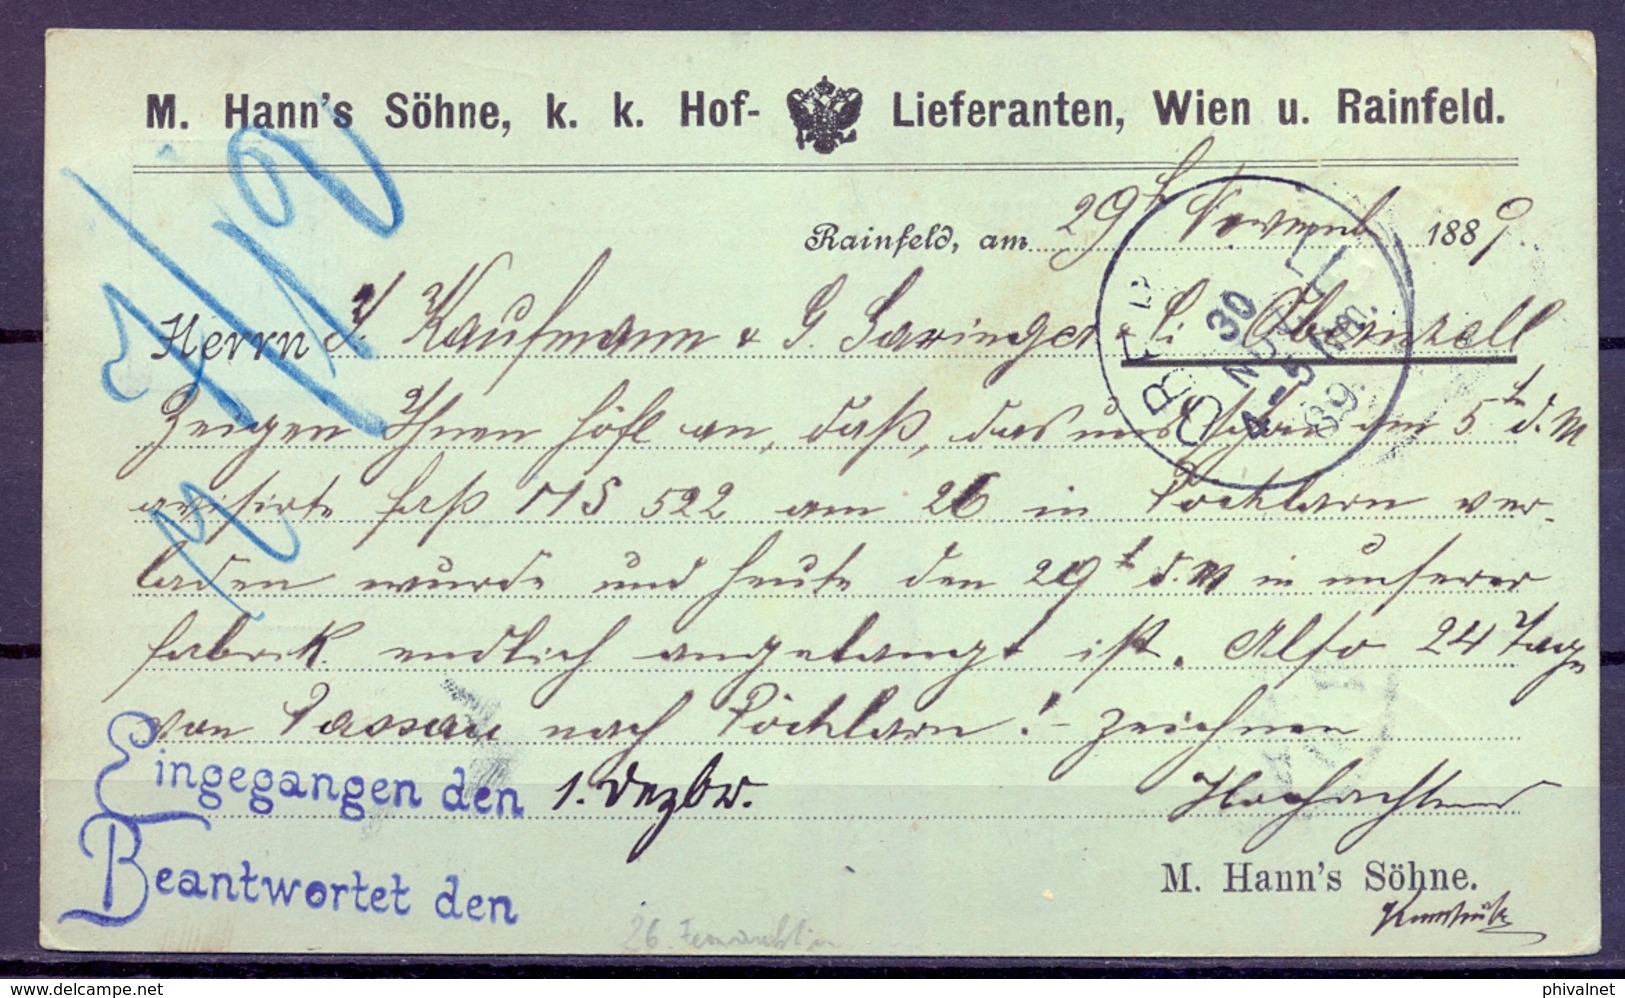 M. Hann's Söhne, k. k. Hof- Lieferanten, Wien u. Rainfeld.
7/12
Rainfeld, am 29t November 1889.
Herrn J. Kaufmann & G. Saxinger Obernzell
Zeigen Ihnen höfl an, daß, das uns schon am 5t d. M
avisirte Faß HS 522 am 26 in Pöchlarn ver-
laden wurde und heute den 29t d. M in unserer
Fabrik endlich angelangt ist. Also 24 Tage
von Passau nach Pöchlarn! – zeichnen
Eingegangen den 1. Dezbr.
Hochachtend
Beantwortet den
M. Hann's Söhne.
30
4-5
89.
phivalnet
delcampe.net